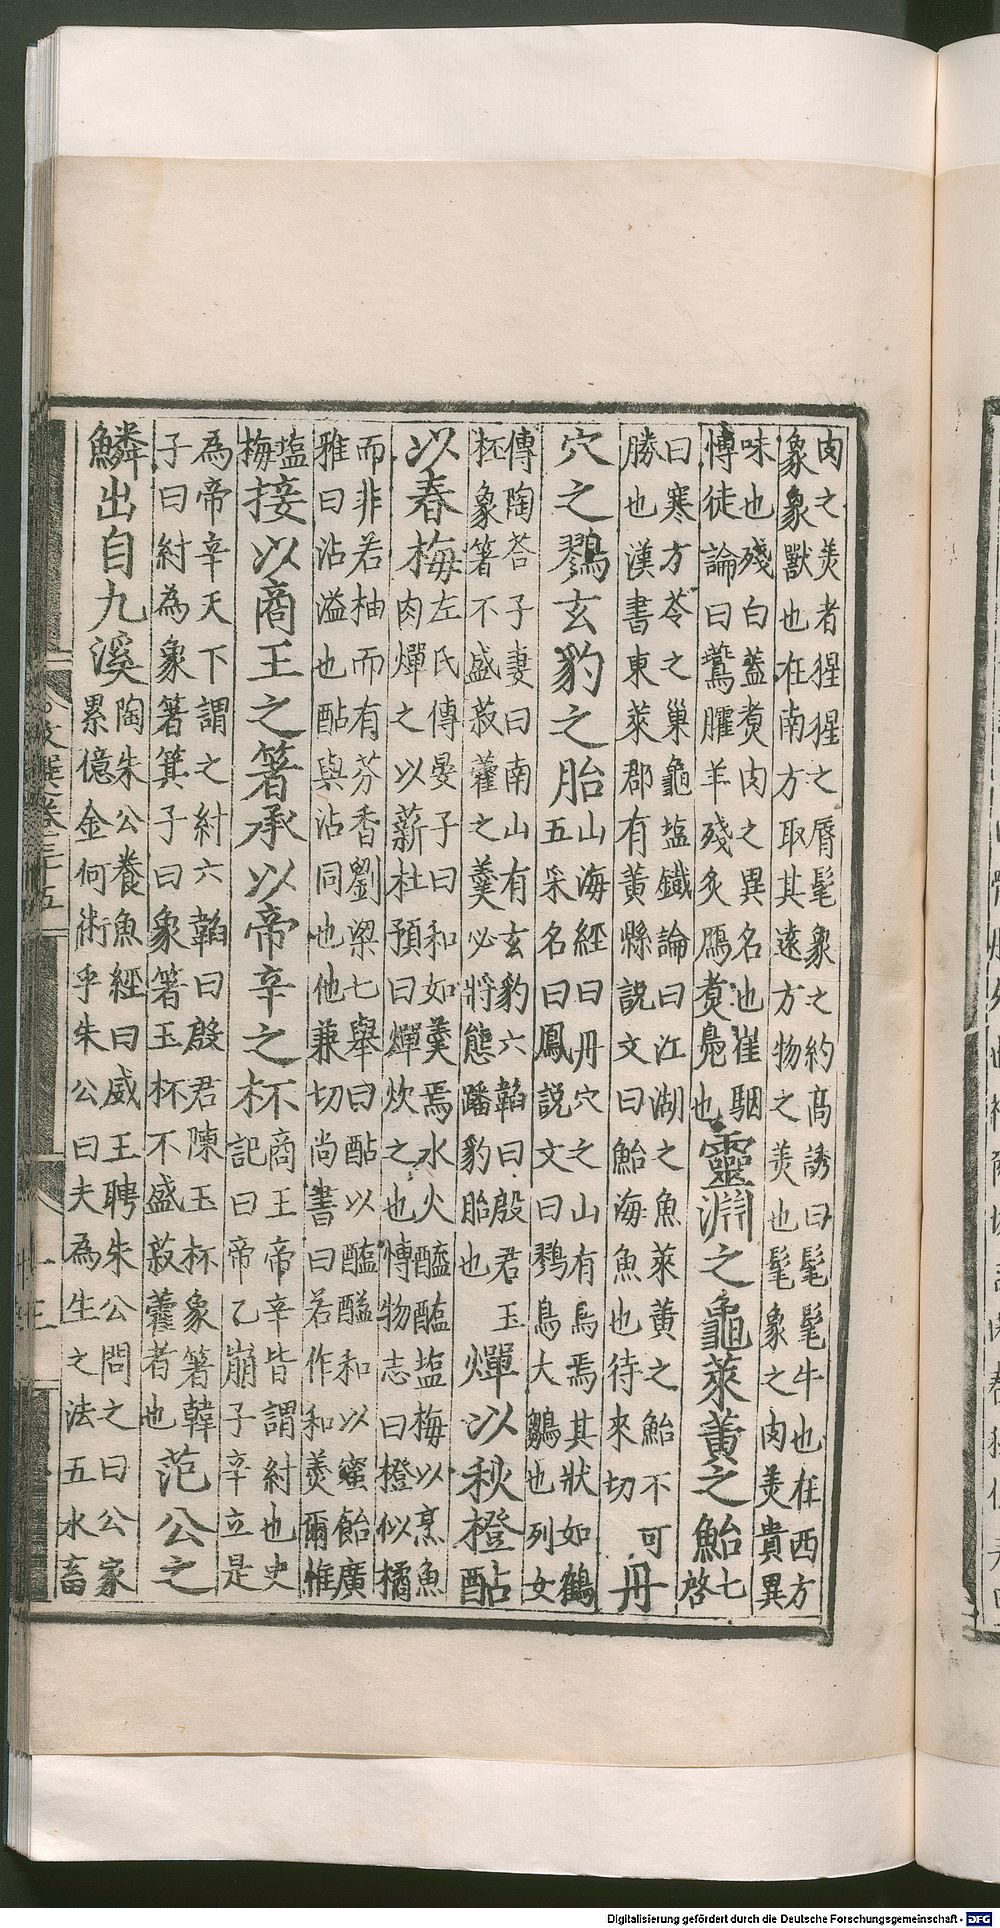 肉之羙者猩猩之脣髦象之約髙誘曰髦髦牛也在西方
象象獸也在南方取其遠方物之羙也髦象之肉羙貴異
味也殘白蓋煑肉之異名也崔駰
愽徒論曰鷰臛羊殘炙鴈煑鳧也
靈淵之龜萊黃之鮐
七
啓
曰寒方苓之巢龜塩鐵論曰江湖之魚萊黃之鮐不可
勝也漢書東萊郡有黃縣説文曰鮐海魚也待來切
丹
穴之鷚玄豹之胎
山海經曰丹穴之山有鳥焉其狀如鶴
五采名曰鳳説文曰鷚鳥大鶵也列女
傳陶荅子妻曰南山有玄豹六韜曰殷君玉
杯象箸不盛菽藿之羹必將熊蹯豹胎也
燀以秋橙酟
以春梅
左氏傳晏子曰和如羹焉水火醯醢塩梅以烹魚
肉燀之以薪杜預曰燀炊之也愽物志曰橙似橘
而非若柚而有芬香劉梁七舉曰酟以醯醢和以蜜飴廣
雅曰沾溢也酟與沾同也他兼切尚書曰若作和羙爾惟
塩
梅
接以商王之箸承以帝辛之杯
商王帝辛皆謂紂也史
記曰帝乙崩子辛立是
為帝辛天下謂之紂六韜曰殷君陳玉杯象箸韓
子曰紂為象箸箕子曰象箸玉杯不盛菽藿者也
范公之
鱗出自九溪
陶朱公養魚經曰威王聘朱公問之曰公家
累億金何術乎朱公曰夫為生之法五水畜
文選卷三十五
十三
Digitalisierung gefördert durch die Deutsche Forschungsgemeinschaft - DFG